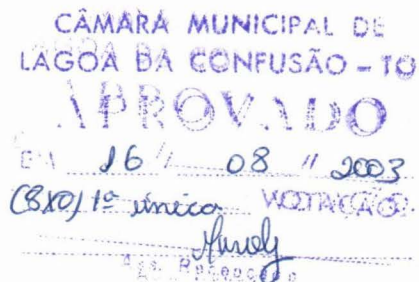 CÂMARA MUNICIPAL DE
LAGOA DA CONFUSÃO - TO
APROVADO
EM 16 // 08 // 2003
(8X0) 1ª única VOTAÇÃO